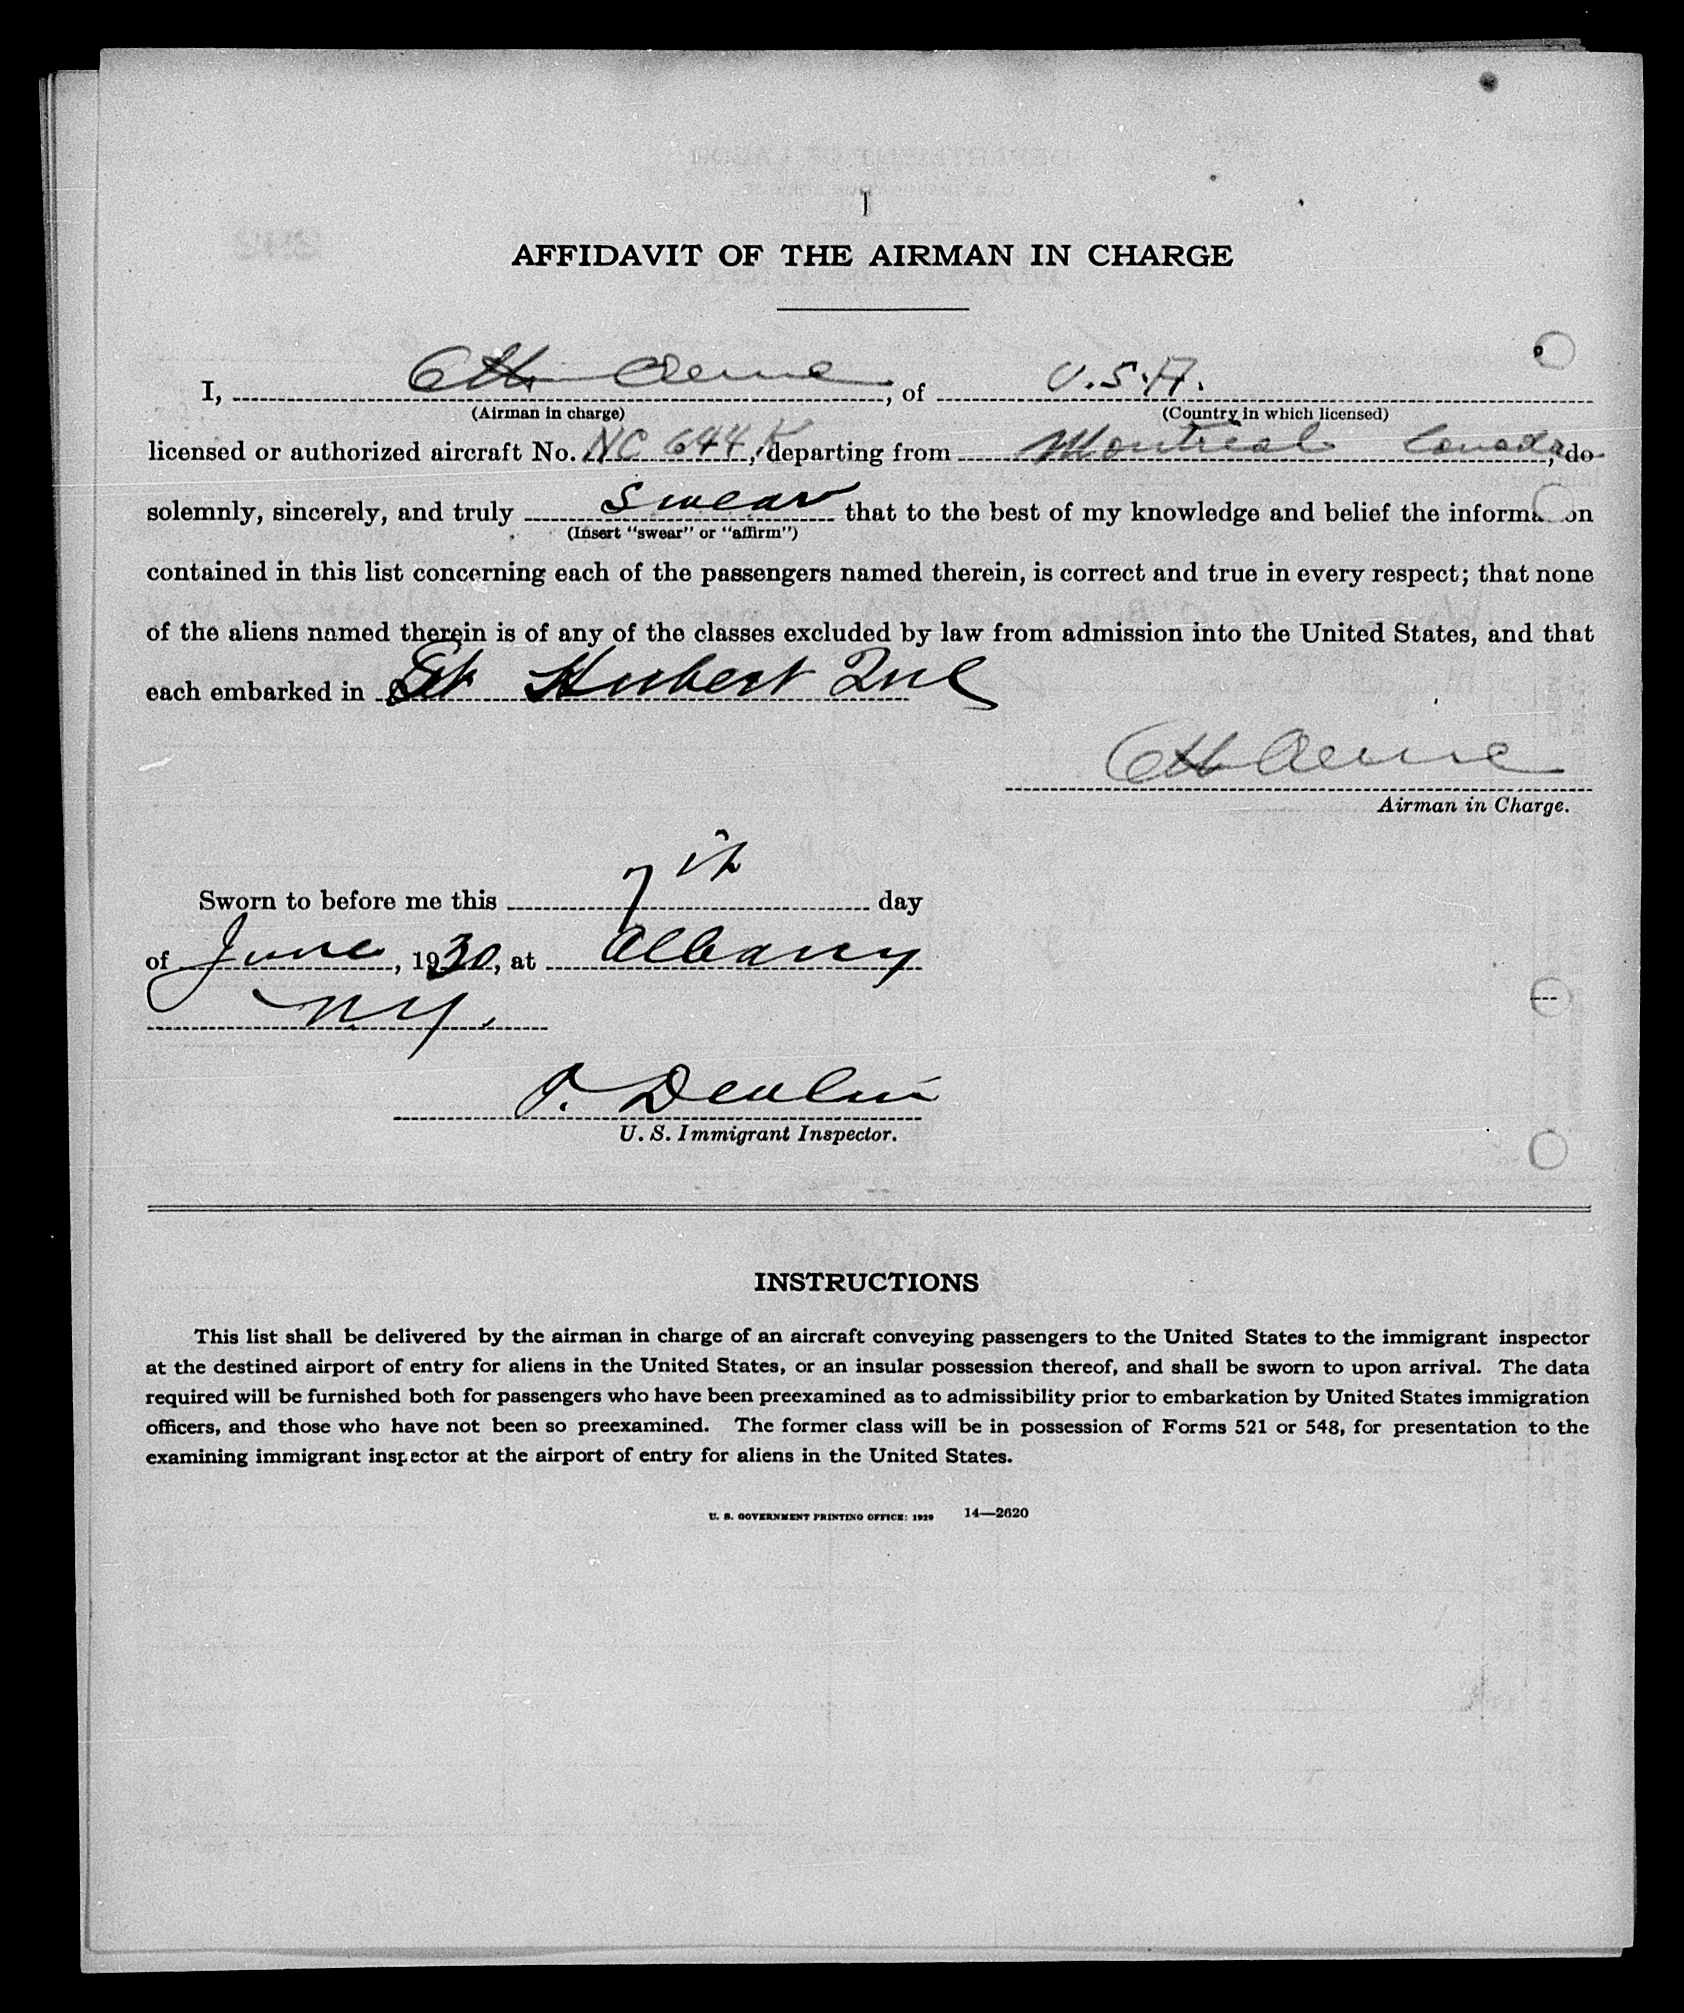 AFFIDAVIT OF THE AIRMAN IN CHARGE
I, , of U.S.A.
(Airman in charge) (Country in which licensed)
licensed or authorized aircraft No. NC 644 K, departing from Montreal Canada, do
solemnly, sincerely, and truly swear that to the best of my knowledge and belief the information
(Insert "swear" or "affirm")
contained in this list concerning each of the passengers named therein, is correct and true in every respect; that none
of the aliens named therein is of any of the classes excluded by law from admission into the United States, and that
each embarked in St Hubert Que
Airman in Charge.
Sworn to before me this 7th day
of June, 1930, at Albany
N.Y.
Devlin
U. S. Immigrant Inspector.
INSTRUCTIONS
This list shall be delivered by the airman in charge of an aircraft conveying passengers to the United States to the immigrant inspector
at the destined airport of entry for aliens in the United States, or an insular possession thereof, and shall be sworn to upon arrival. The data
required will be furnished both for passengers who have been preexamined as to admissibility prior to embarkation by United States immigration
officers, and those who have not been so preexamined. The former class will be in possession of Forms 521 or 548, for presentation to the
examining immigrant inspector at the airport of entry for aliens in the United States.
U. S. GOVERNMENT PRINTING OFFICE: 1929 14—2620